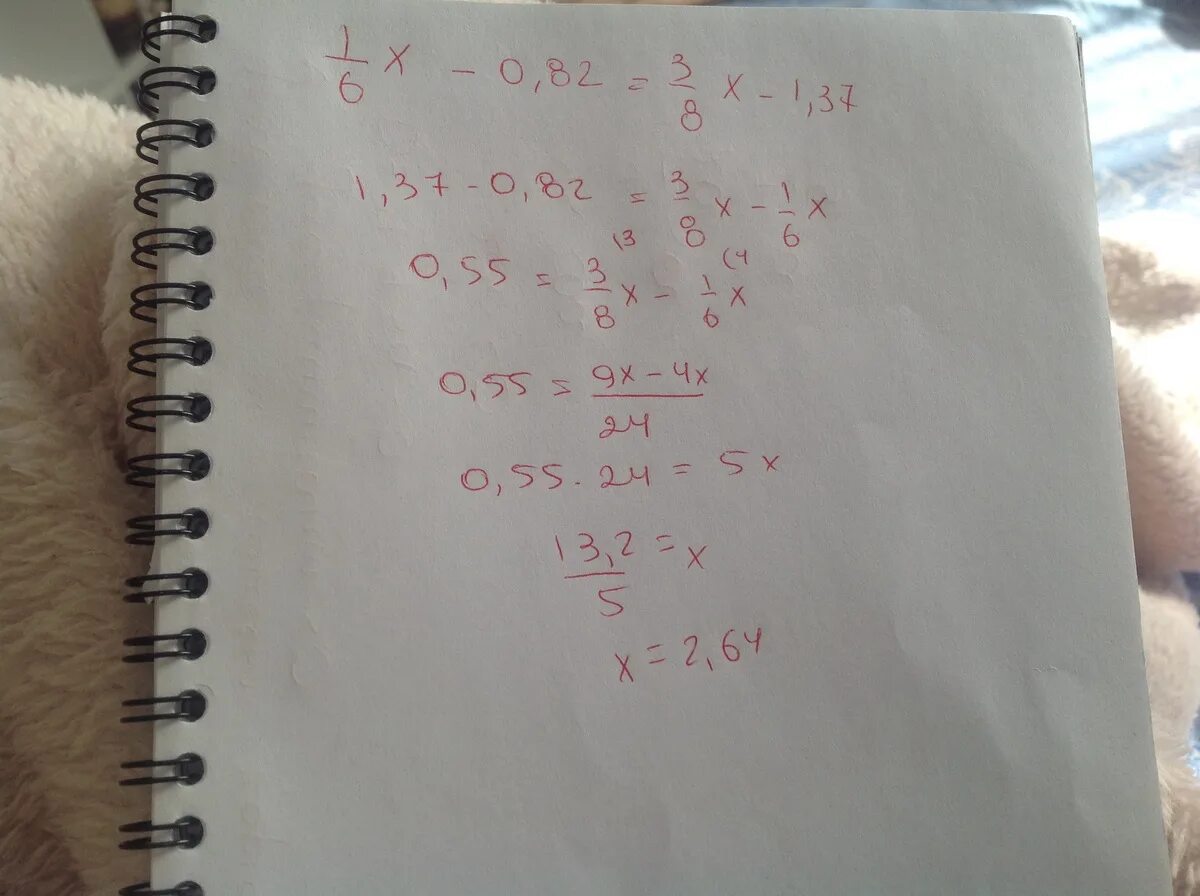 1/6 x - 0,82 = 3/8 x - 1,37
1,37 - 0,82 = 3/8 x - 1/6 x
0,55 = 3/8 (3 x - 1/6 (4 x
0,55 = 9x - 4x / 24
0,55 · 24 = 5x
13,2 / 5 = x
x = 2,64